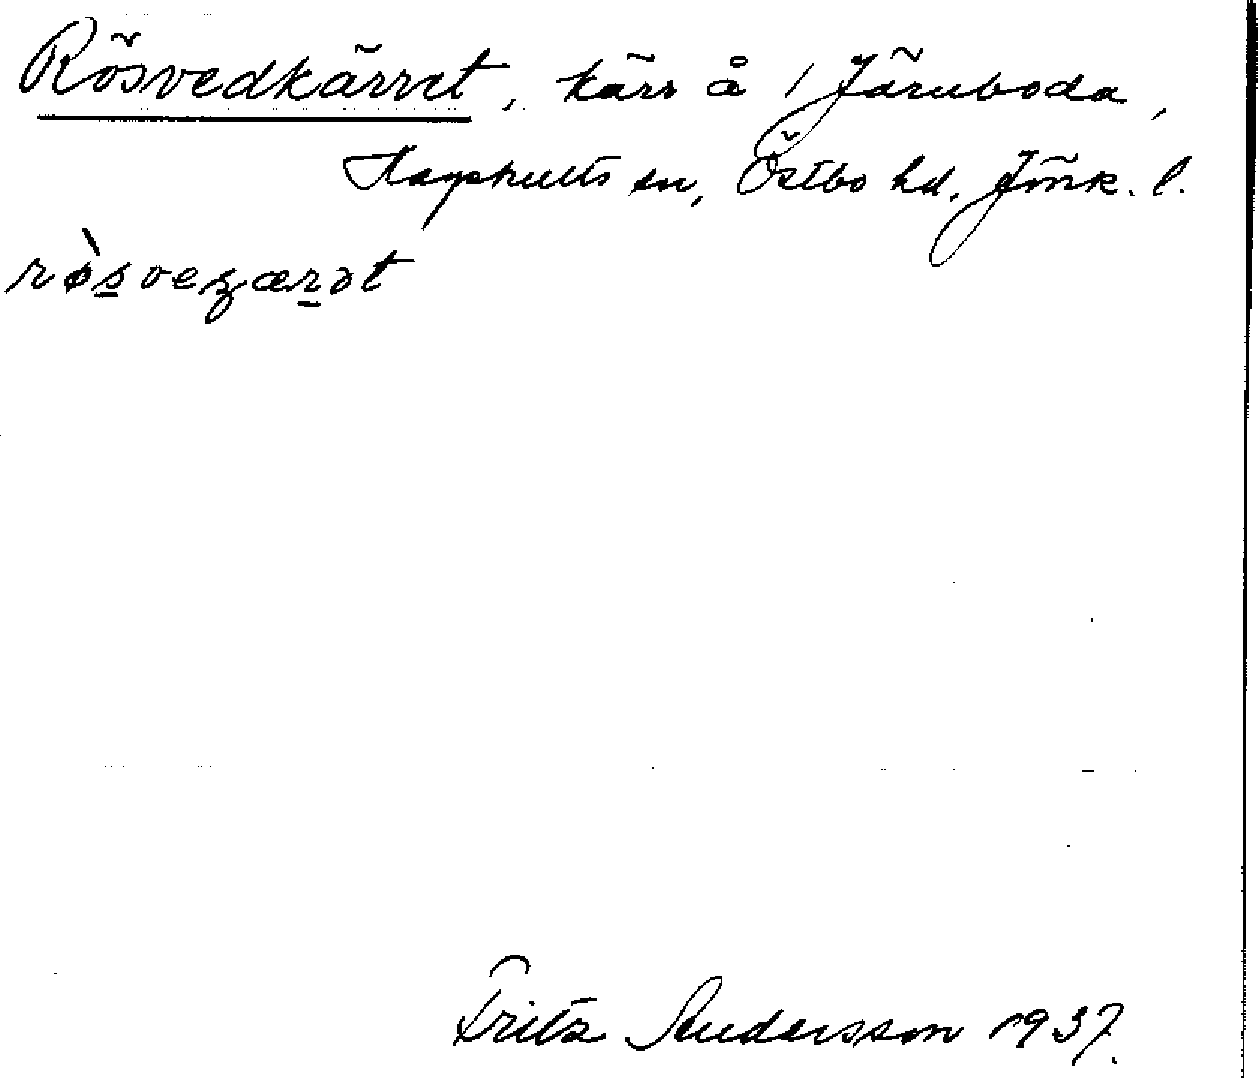 Rösvedkärret, kärr å 1 Järnboda,
Hagshults sn, Östbo hd. Jönk. l.
Fritz Andersson 1937.